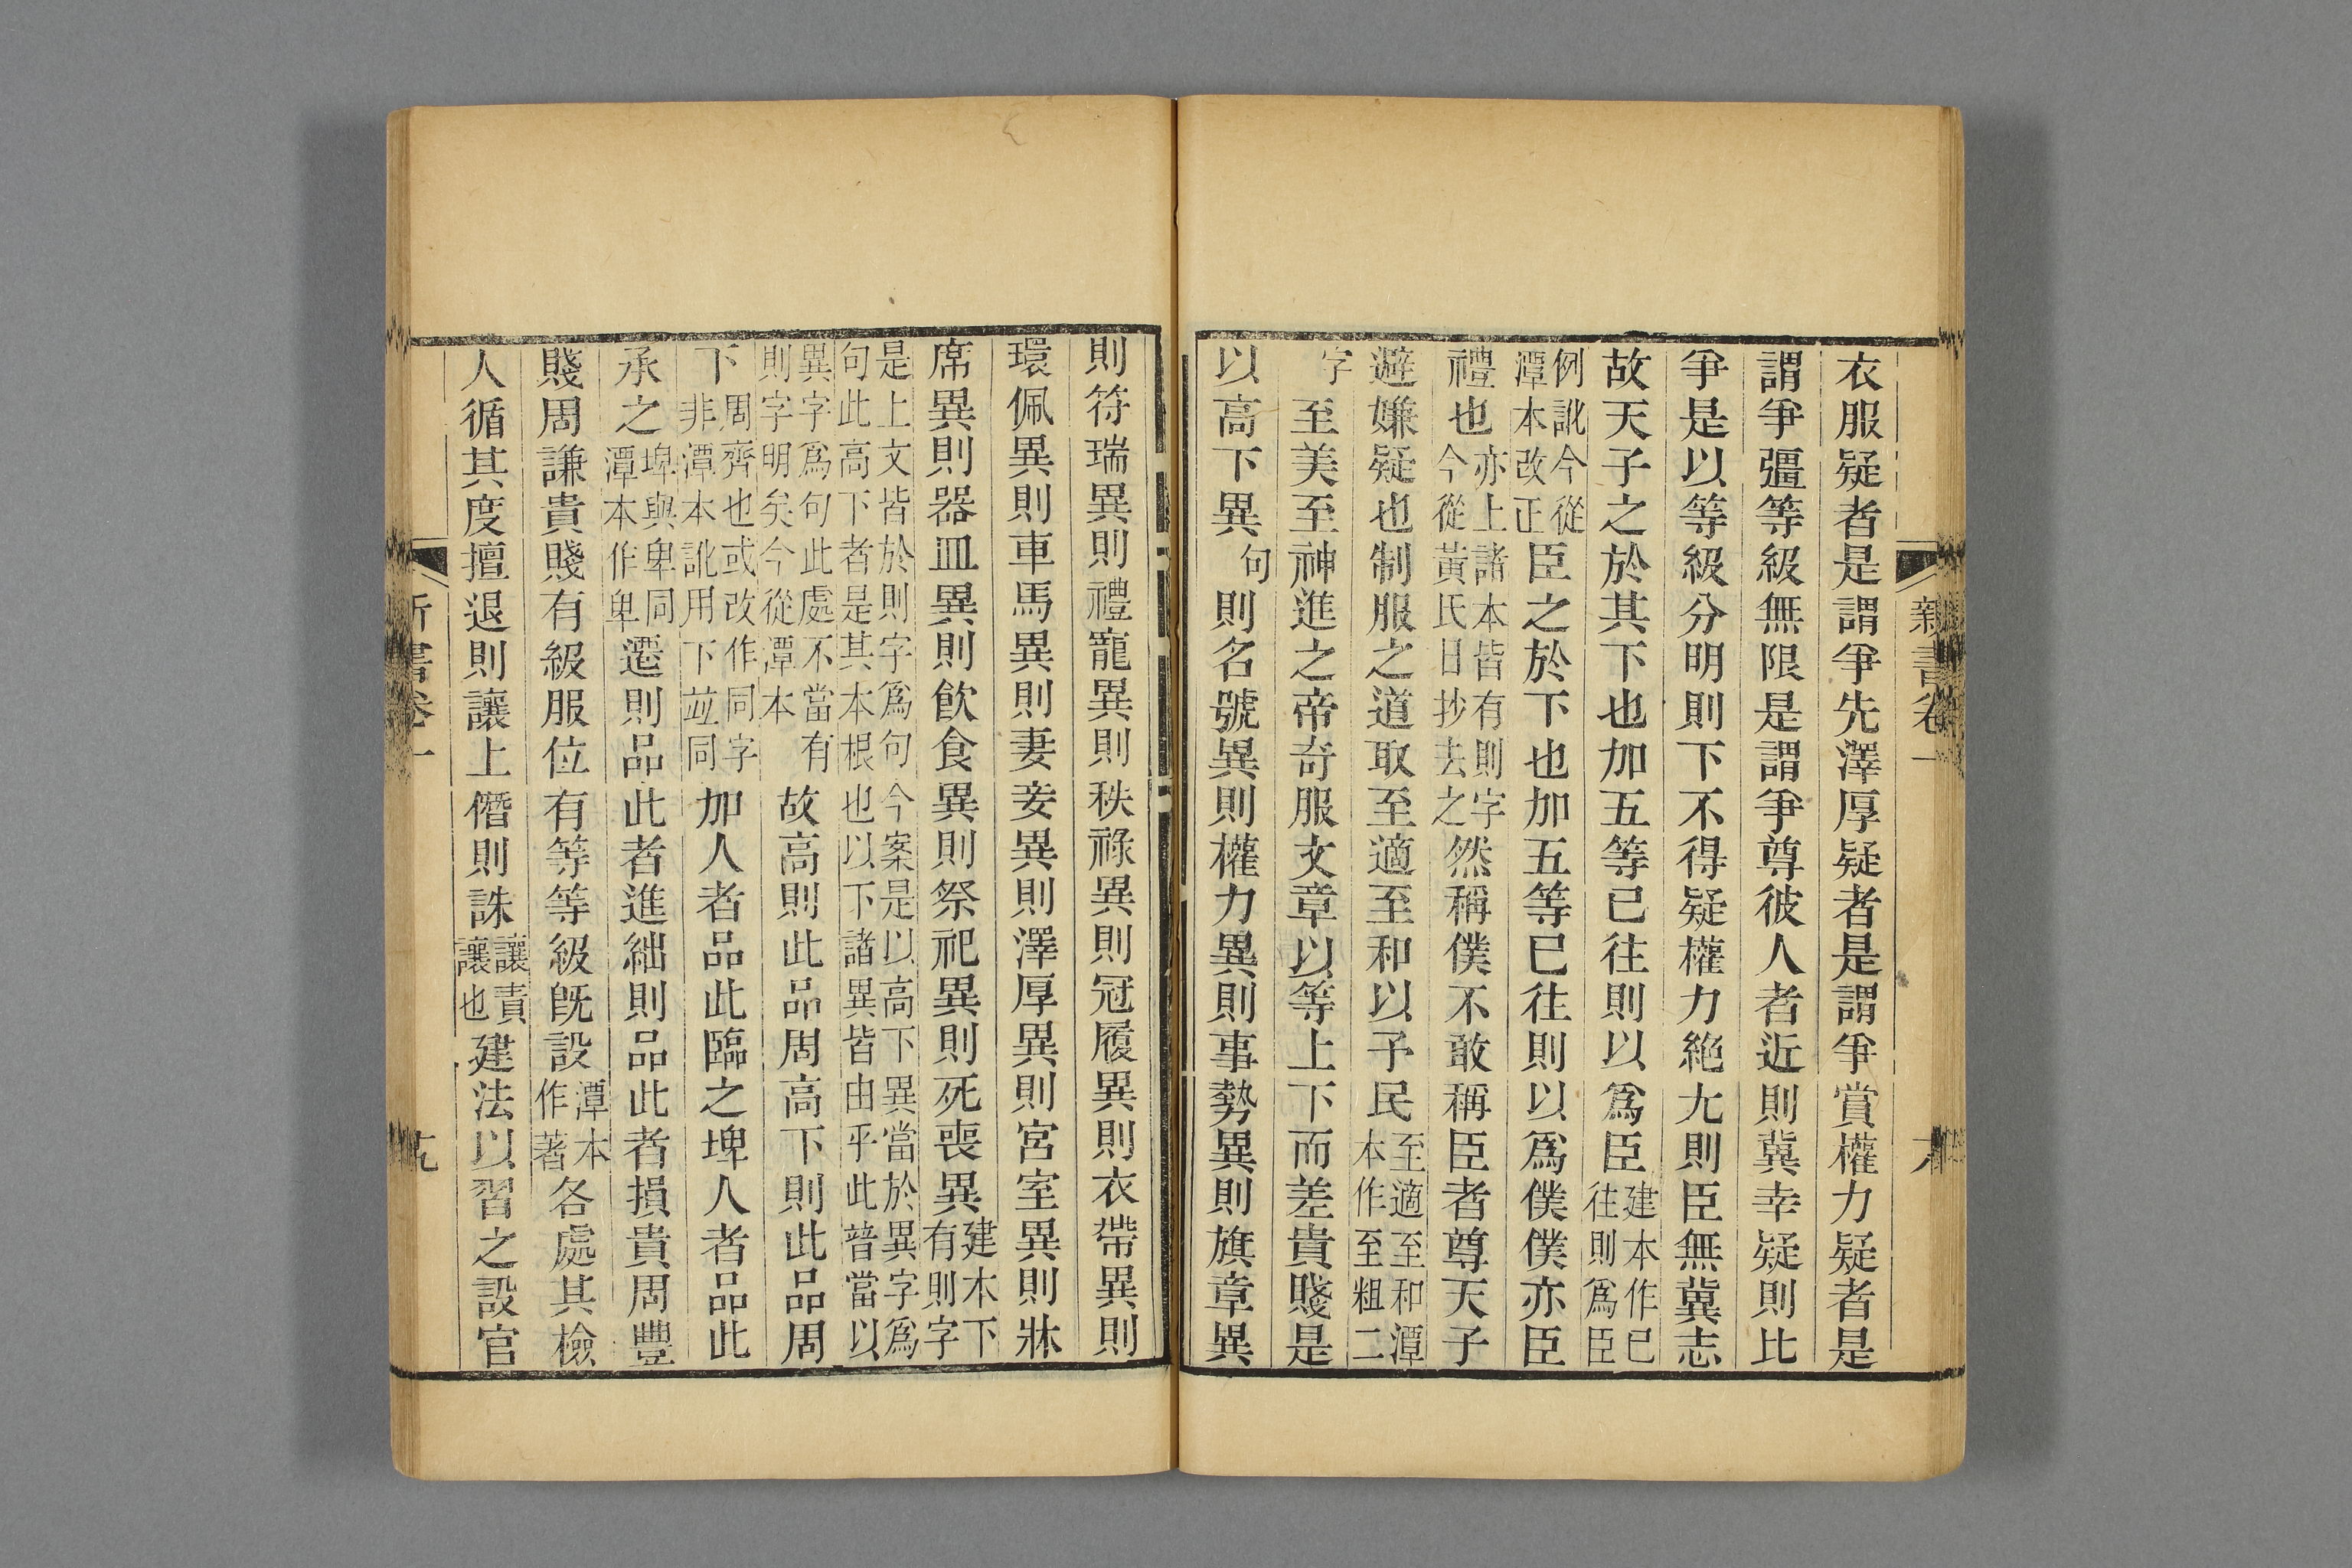 新書卷一
衣服疑者是謂爭先澤厚疑者是謂爭賞權力疑者是
謂爭彊等級無限是謂爭尊彼人者近則冀幸疑則比
爭是以等級分明則下不得疑權力絕尤則臣無冀志
故天子之於其下也加五等已往則以爲臣建本作已往則爲臣
例訛今從潭本改正臣之於下也加五等已往則以爲僕僕亦臣
禮也亦上諸本皆有則字今從黃氏日抄去之然稱僕不敢稱臣者尊天子
避嫌疑也制服之道取至適至和以予民至適至和潭本作至粗二
字至美至神進之帝奇服文章以等上下而差貴賤是
以高下異句則名號異則權力異則事勢異則旗章異
則符瑞異則禮寵異則秩祿異則冠履異則衣帶異則
環佩異則車馬異則妻妾異則澤厚異則宮室異則牀
席異則器皿異則飲食異則祭祀異則死喪異建本下有則字
是上文皆於則字爲句今案是以高下異當於異字爲
句此高下者是其本根也以下諸異皆由乎此暜當以
異字爲句此處不當有則字明矣今從潭本故高則此品周高下則此品周
下周齊也或改作同字非潭本訛用下竝同加人者品此臨之埤人者品此
承之埤與卑同潭本作卑遷則品此者進絀則品此者損貴周豐
賤周謙貴賤有級服位有等等級旣設潭本作著各處其檢
人循其度擅退則讓上僭則誅讓責讓也建法以習之設官
新書卷一